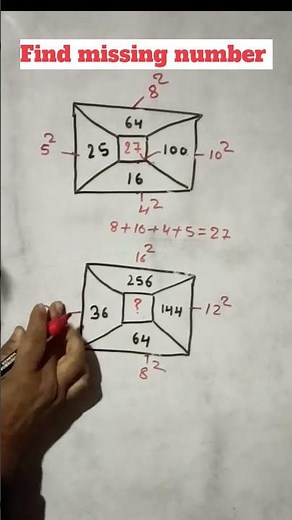 Find missing number
8²
64
5² 25 27 100 10²
16
4²
8+10+4+5=27
16²
256
36 ? 144 12²
64
8²